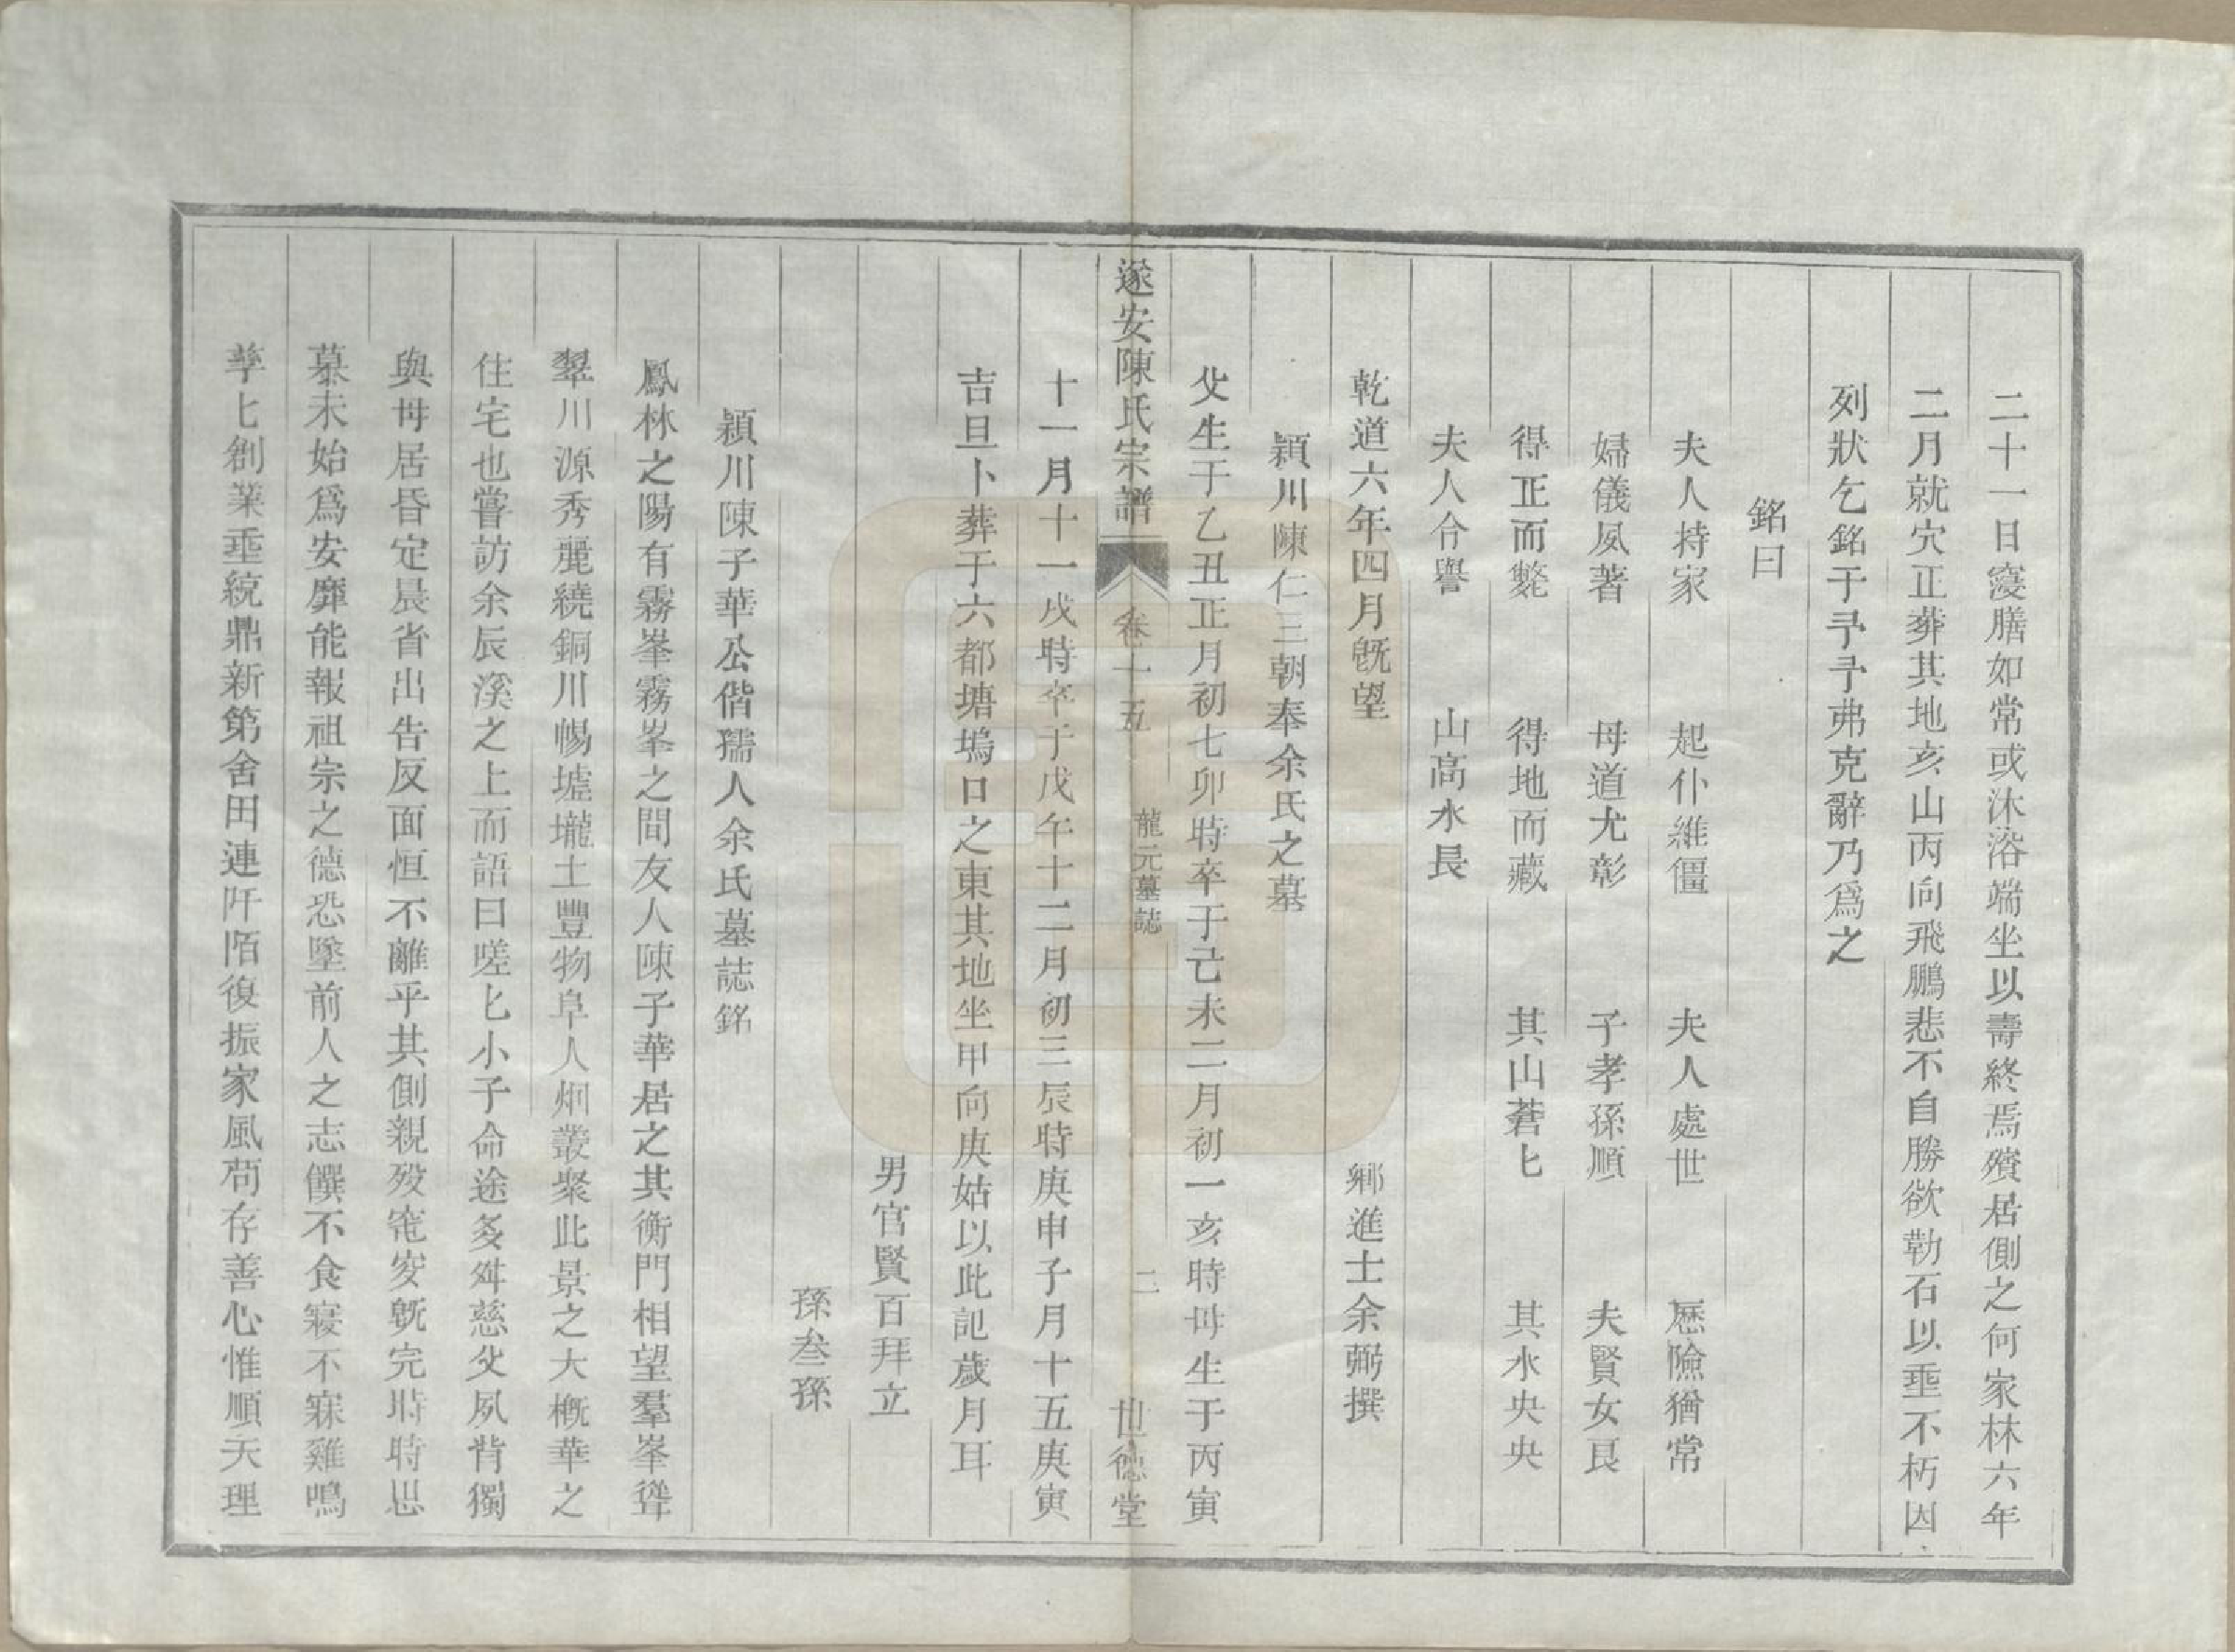 二十一日寢膳如常或沐浴端坐以壽終焉殯居側之何家林六年
二月就穴正葬其地亥山丙向飛鵬悲不自勝欲勒石以垂不朽因
列狀乞銘于予予弗克辭乃爲之
銘曰
夫人持家　起仆維僵　夫人處世　歷險猶常
婦儀夙著　母道尤彰　子孝孫順　夫賢女良
得正而斃　得地而藏　其山蒼匕　其水央央
夫人令譽　山高水長
乾道六年四月旣望　鄉進士余弼撰
潁川陳仁三朝奉余氏之墓
父生于乙丑正月初七卯時卒于己未二月初一亥時母生于丙寅
遂安陳氏宗譜　卷十五　龍元墓誌　二　世德堂
十一月十一戌時卒于戊午十二月初三辰時庚申子月十五庚寅
吉旦卜葬于六都塘塢口之東其地坐甲向庚姑以此記歲月耳
男官賢百拜立
孫叁孫
潁川陳子華公偕孺人余氏墓誌銘
鳳林之陽有霧峯霧峯之間友人陳子華居之其衡門相望羣峯聳
翠川源秀麗繞銅川暢墟壠土豐物阜人烟叢聚此景之大概華之
住宅也嘗訪余辰溪之上而語曰嗟匕小子命途多舛慈父夙背獨
與母居昏定晨省出告反面恒不離乎其側親歿窀穸旣完時時思
慕未始爲安靡能報祖宗之德恐墜前人之志饌不食寢不寐雞鳴
孳匕創業垂統鼎新第舍田連阡陌復振家風苟存善心惟順天理